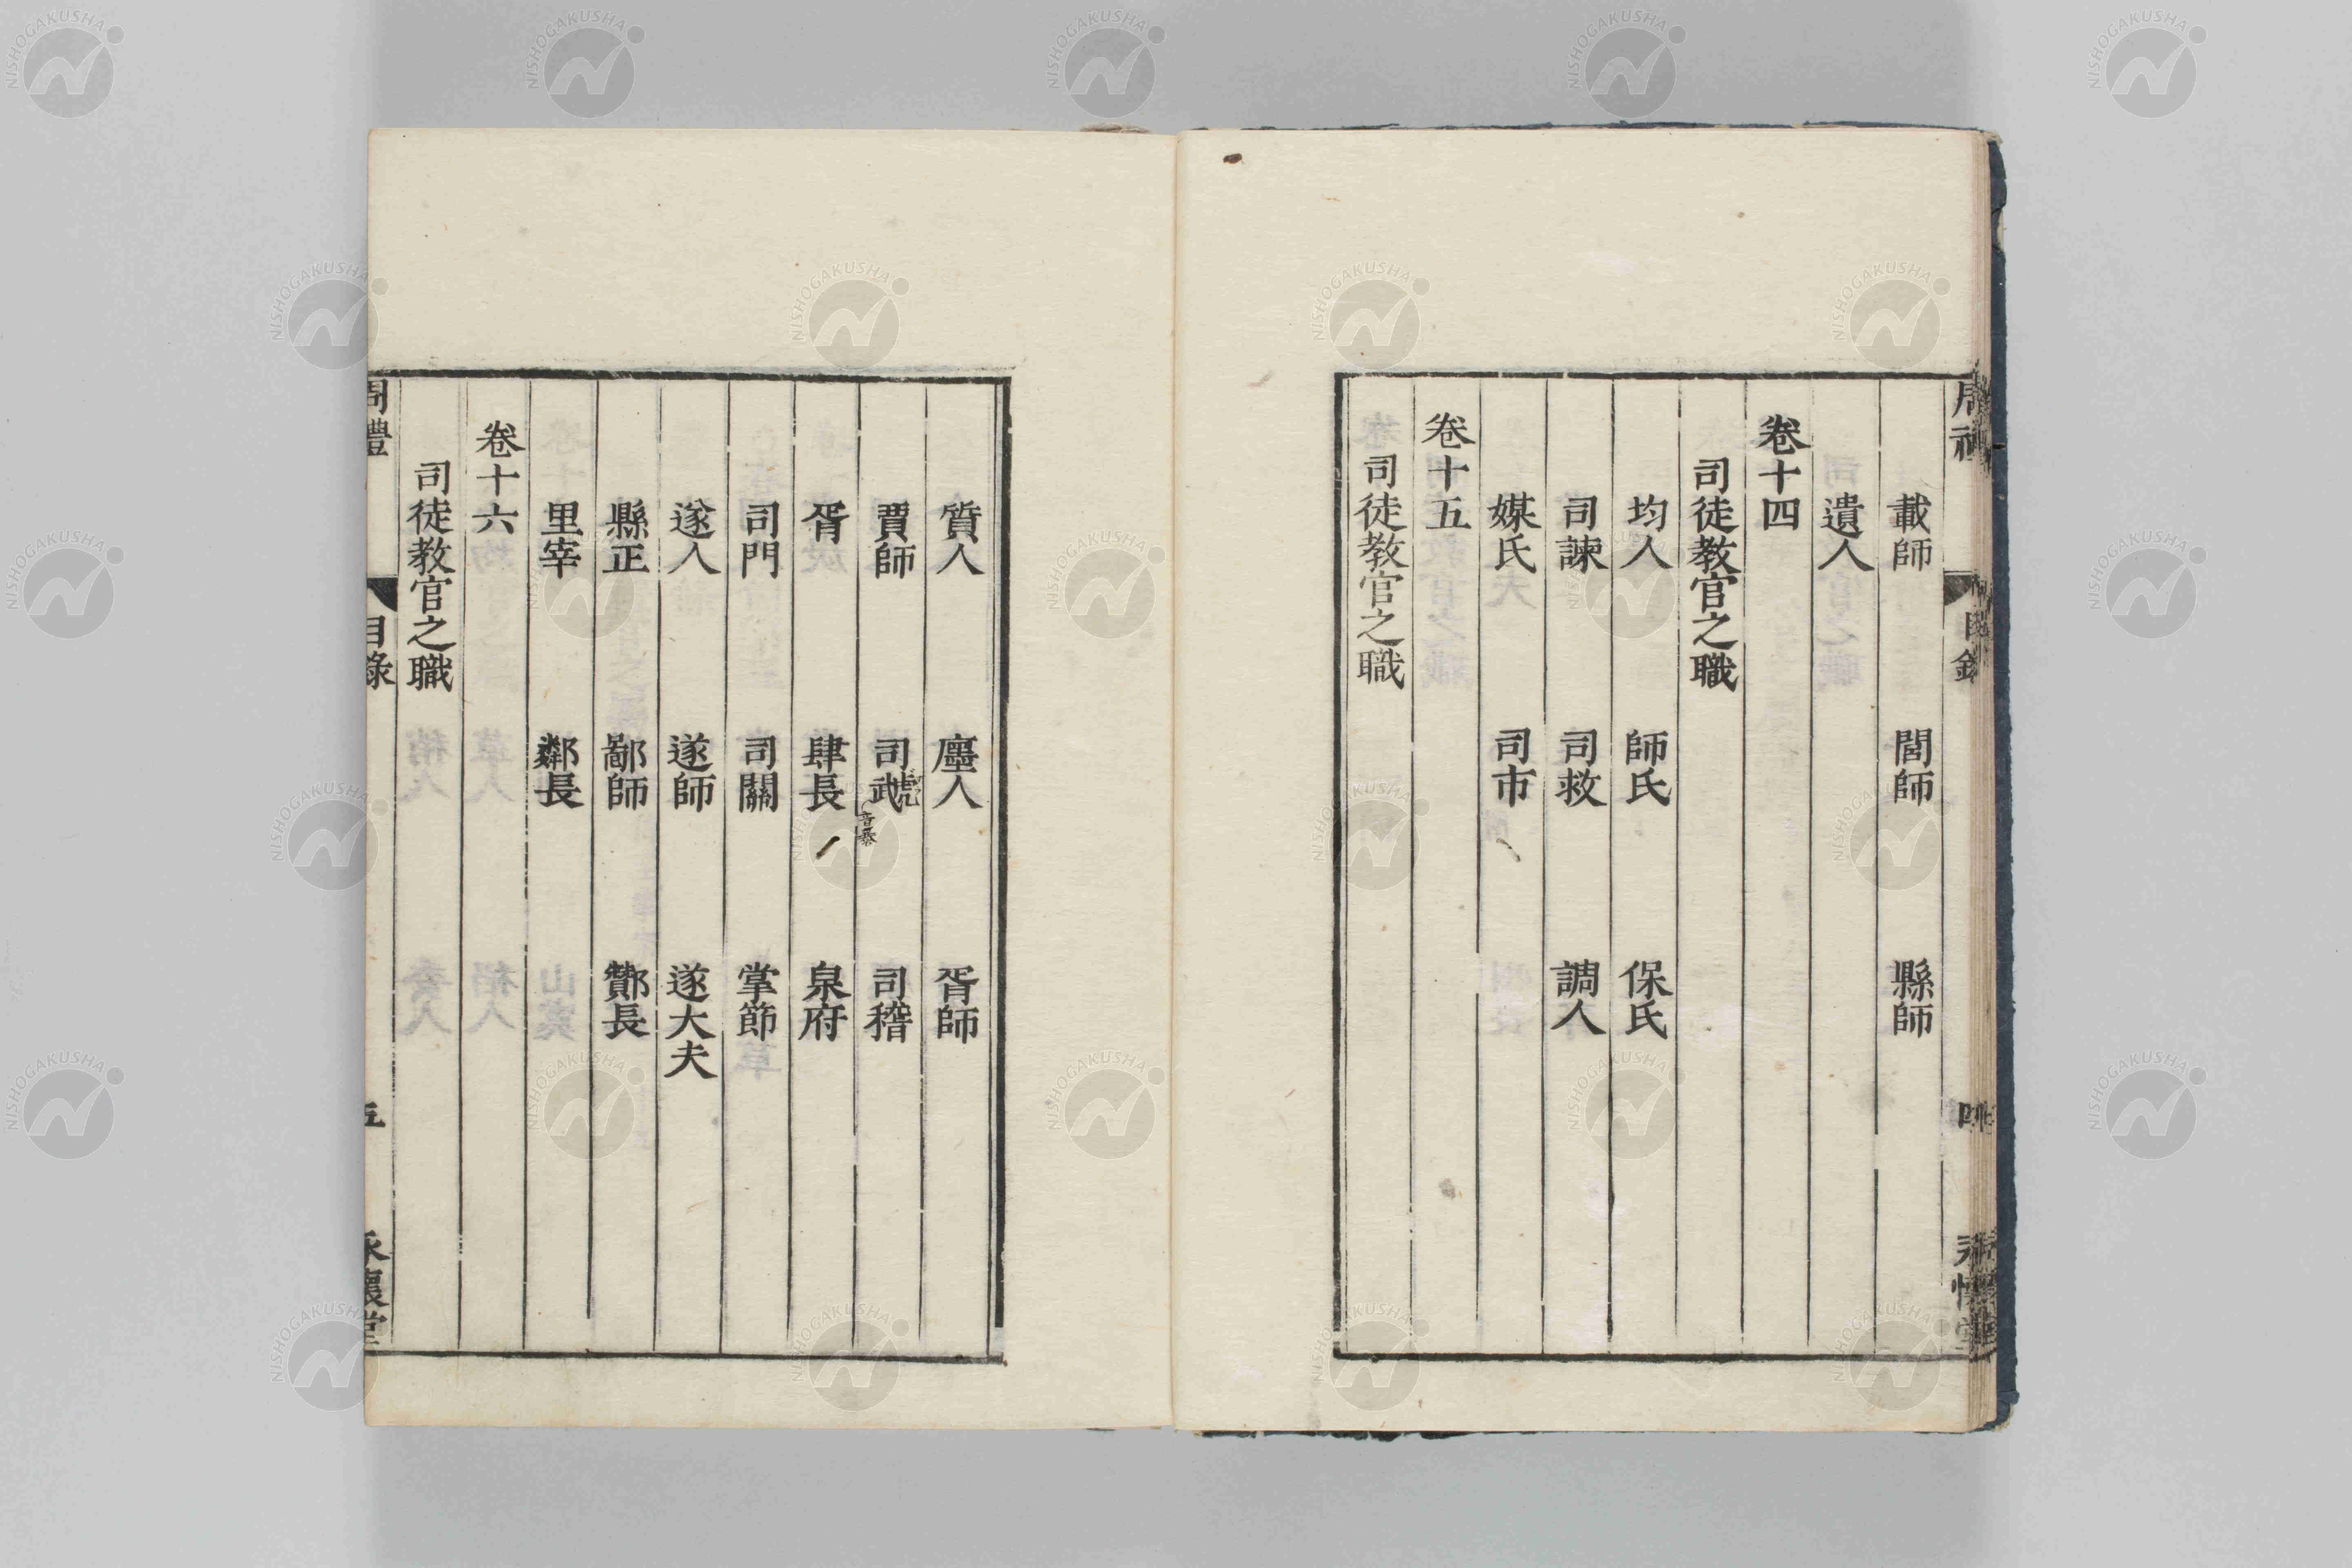 載師 閭師 縣師
遺人
卷十四
司徒教官之職
均人 師氏 保氏
司諫 司救 調人
媒氏 司市
卷十五
司徒教官之職
質人 廛人 胥師
賈師 司武虣 司稽
音暴
胥 肆長 泉府
司門 司關 掌節
遂人 遂師 遂大夫
縣正 鄙師 酇長
里宰 鄰長
卷十六
司徒教官之職
周禮 目錄 五 永懷堂
NISHOGAKUSHA